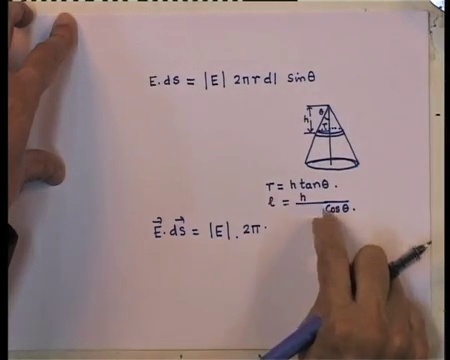 E. ds = |E| 2πr dl sinθ
h
θ
r
r = h tanθ.
l = h / cosθ.
E⃗. dS⃗ = |E|. 2π.